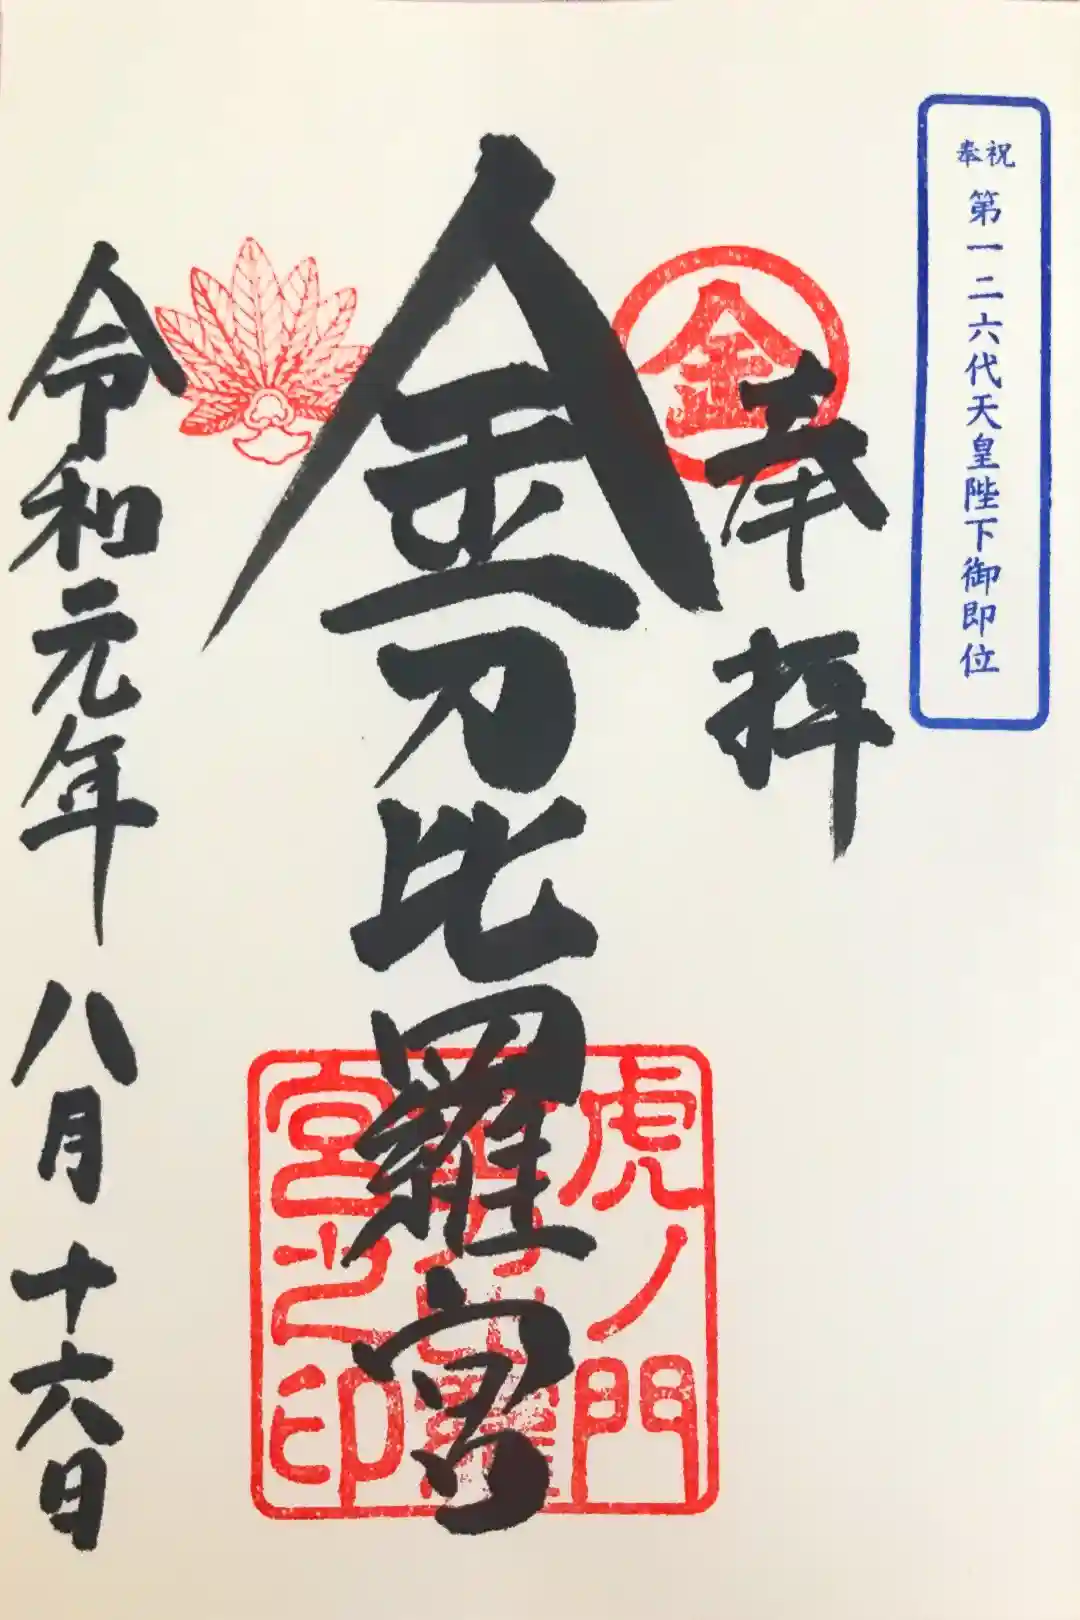 奉祝
第一二六代天皇陛下御即位
奉拝
金
金刀比羅宮
虎ノ門
金刀比羅
宮之印
令和元年八月十六日